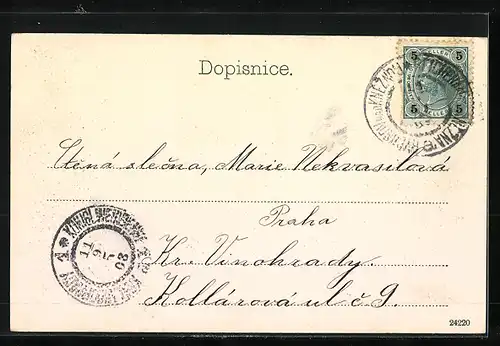 Dopisnice.
5 5
5 5
Ctěná slečna, Marie Nekvasilová
Praha
Kr. Vinohrady.
Kollárova ul č 9.
KÖNIGL
11
5
03
24220